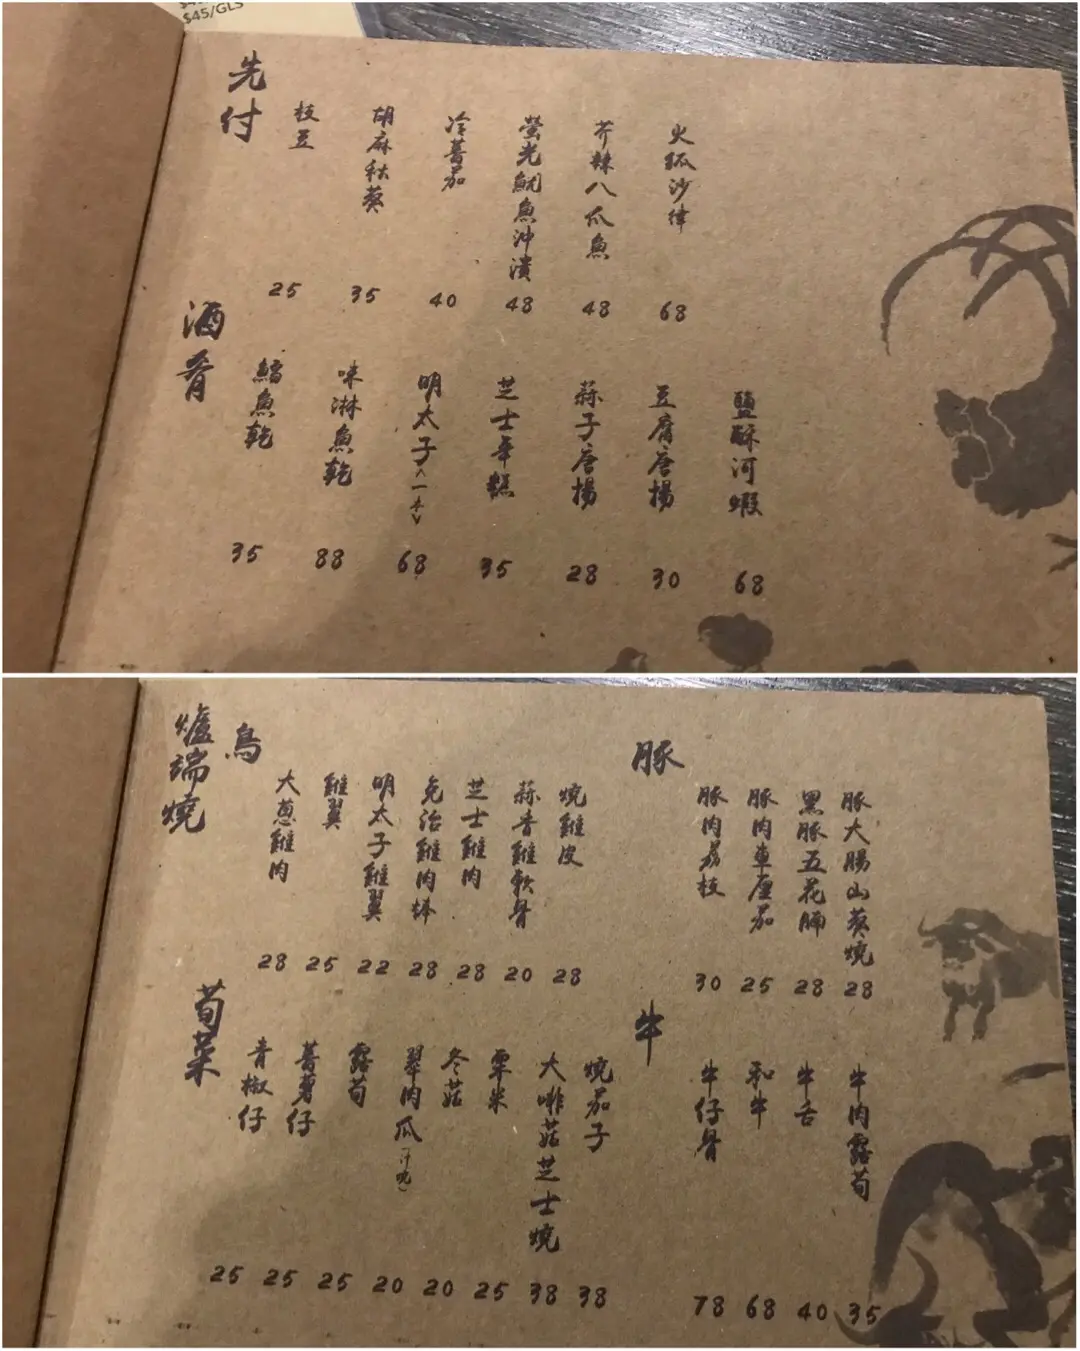 $45/GLS
先付
枝豆
25
胡麻秋葵
35
冷蕃茄
40
螢光魷魚沖漬
48
芥辣八爪魚
48
火狐沙律
68
酒肴
鱈魚乾
35
味淋魚乾
88
明太子(一本)
68
芝士年糕
35
蒜子唐揚
28
豆腐唐揚
30
鹽酥河蝦
68
爐端燒
鳥
大蔥雞肉
28
雞翼
25
明太子雞翼
22
免治雞肉棒
28
芝士雞肉
28
蒜香雞軟骨
20
燒雞皮
28
豚
豚肉荔枝
30
豚肉車厘茄
25
黑豚五花腩
28
豚大腸山葵燒
28
荀菜
青椒仔
25
蕃薯仔
25
露荀
25
翠肉瓜
20
冬菇
20
粟米
25
大啡菇芝士燒
38
燒茄子
38
牛
牛仔骨
78
和牛
68
牛舌
40
牛肉露荀
35